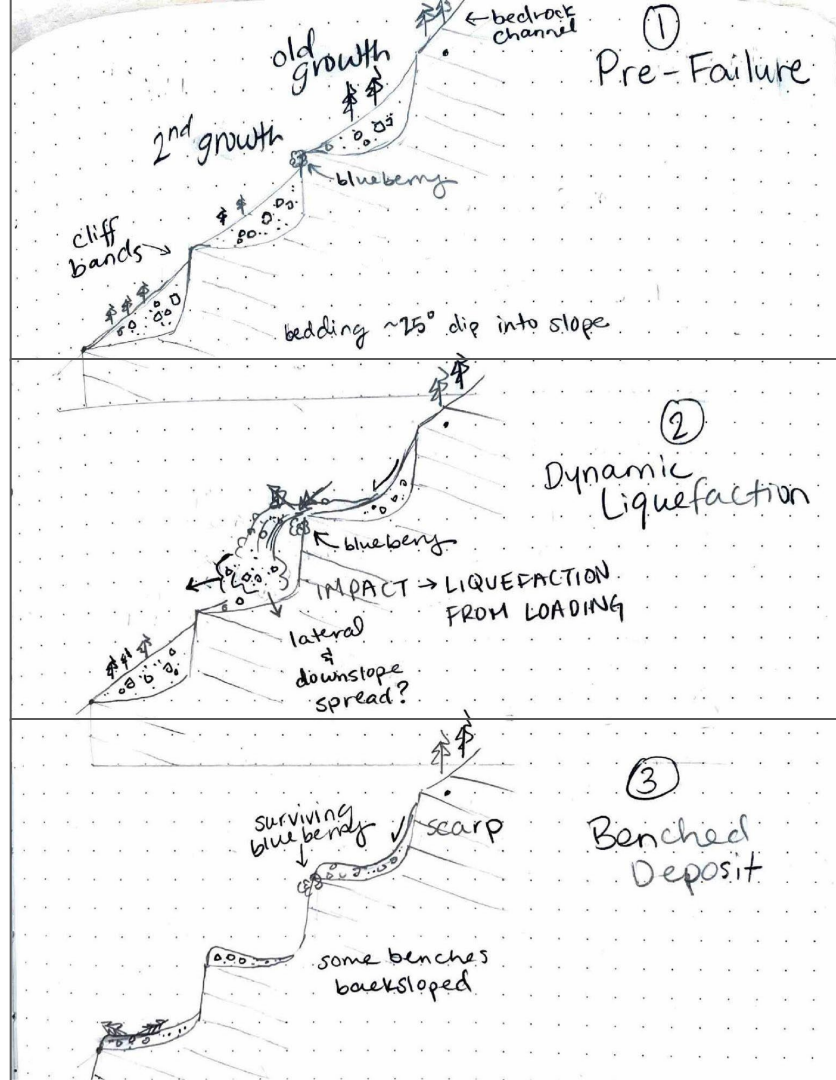 ①
Pre-Failure
← bedrock
channel
old
growth
2nd growth
blueberry
cliff
bands
bedding ~25° dip into slope
②
Dynamic
Liquefaction
blueberry
IMPACT → LIQUEFACTION
FROM LOADING
lateral
&
downslope
spread?
③
Benched
Deposit
surviving
blueberry
scarp
some benches
backsloped